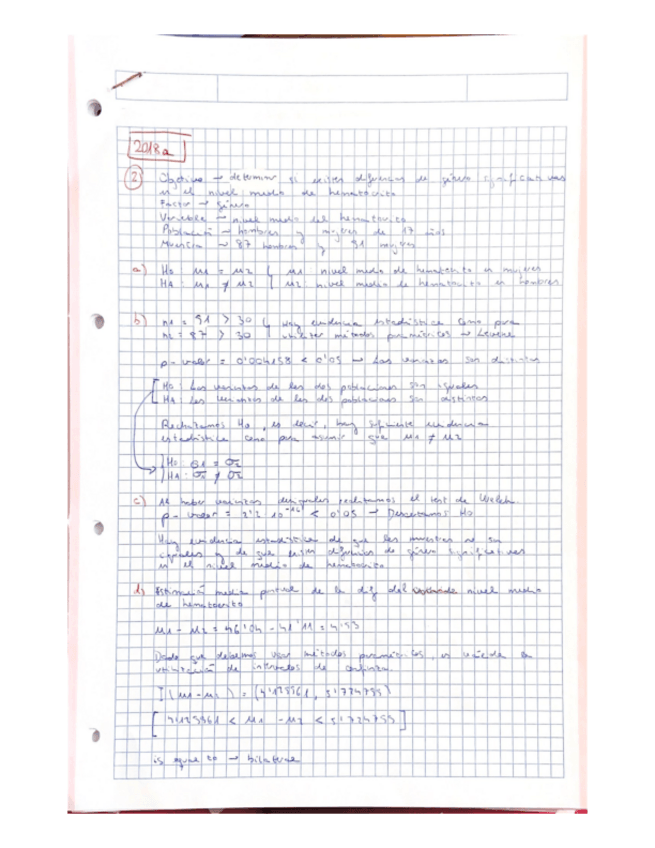 2018a
2) Objetivo → determinar si existen diferencias de género significativas
en el nivel medio de hematocrito
Factor → género
Variable → nivel medio del hematocrito
Población → hombres y mujeres de 17 años
Muestra → 87 hombres y 91 mujeres
a) H0 μ1 = μ2 { μ1 nivel medio de hematocrito en mujeres
HA: μ1 ≠ μ2 { μ2 nivel medio de hematocrito en hombres
b) n1 = 91 > 30 { Hay evidencia estadística como para
n2 = 87 > 30 utilizar métodos paramétricos → Levene
p-valor = 0'004158 < 0'05 → Las varianzas son distintas
H0: Las varianzas de las dos poblaciones son iguales
HA: Las varianzas de las dos poblaciones son distintas
Rechazamos H0, es decir, hay suficiente evidencia
estadística como para asumir que μ1 ≠ μ2
H0: σ1 = σ2
HA: σ1 ≠ σ2
c) Al haber varianzas desiguales realizamos el test de Welch.
p-valor = 2'2 10⁻¹⁶ < 0'05 → Descartamos H0
Hay evidencia estadística de que las muestras no son
iguales y de que existen diferencias de género significativas
en el nivel medio de hematocrito
d) Estimació media puntual de la dif del nivel medio
de hematocrito
μ1 - μ2 = 46'04 - 41'11 = 4'93
Dado que debemos usar métodos paramétricos, es válida la
utilización de intervalos de confianza.
I(μ1-μ2) = (4'125561, 5'724755)
[4'125561 < μ1 - μ2 < 5'724755]
is equal to → bilateral